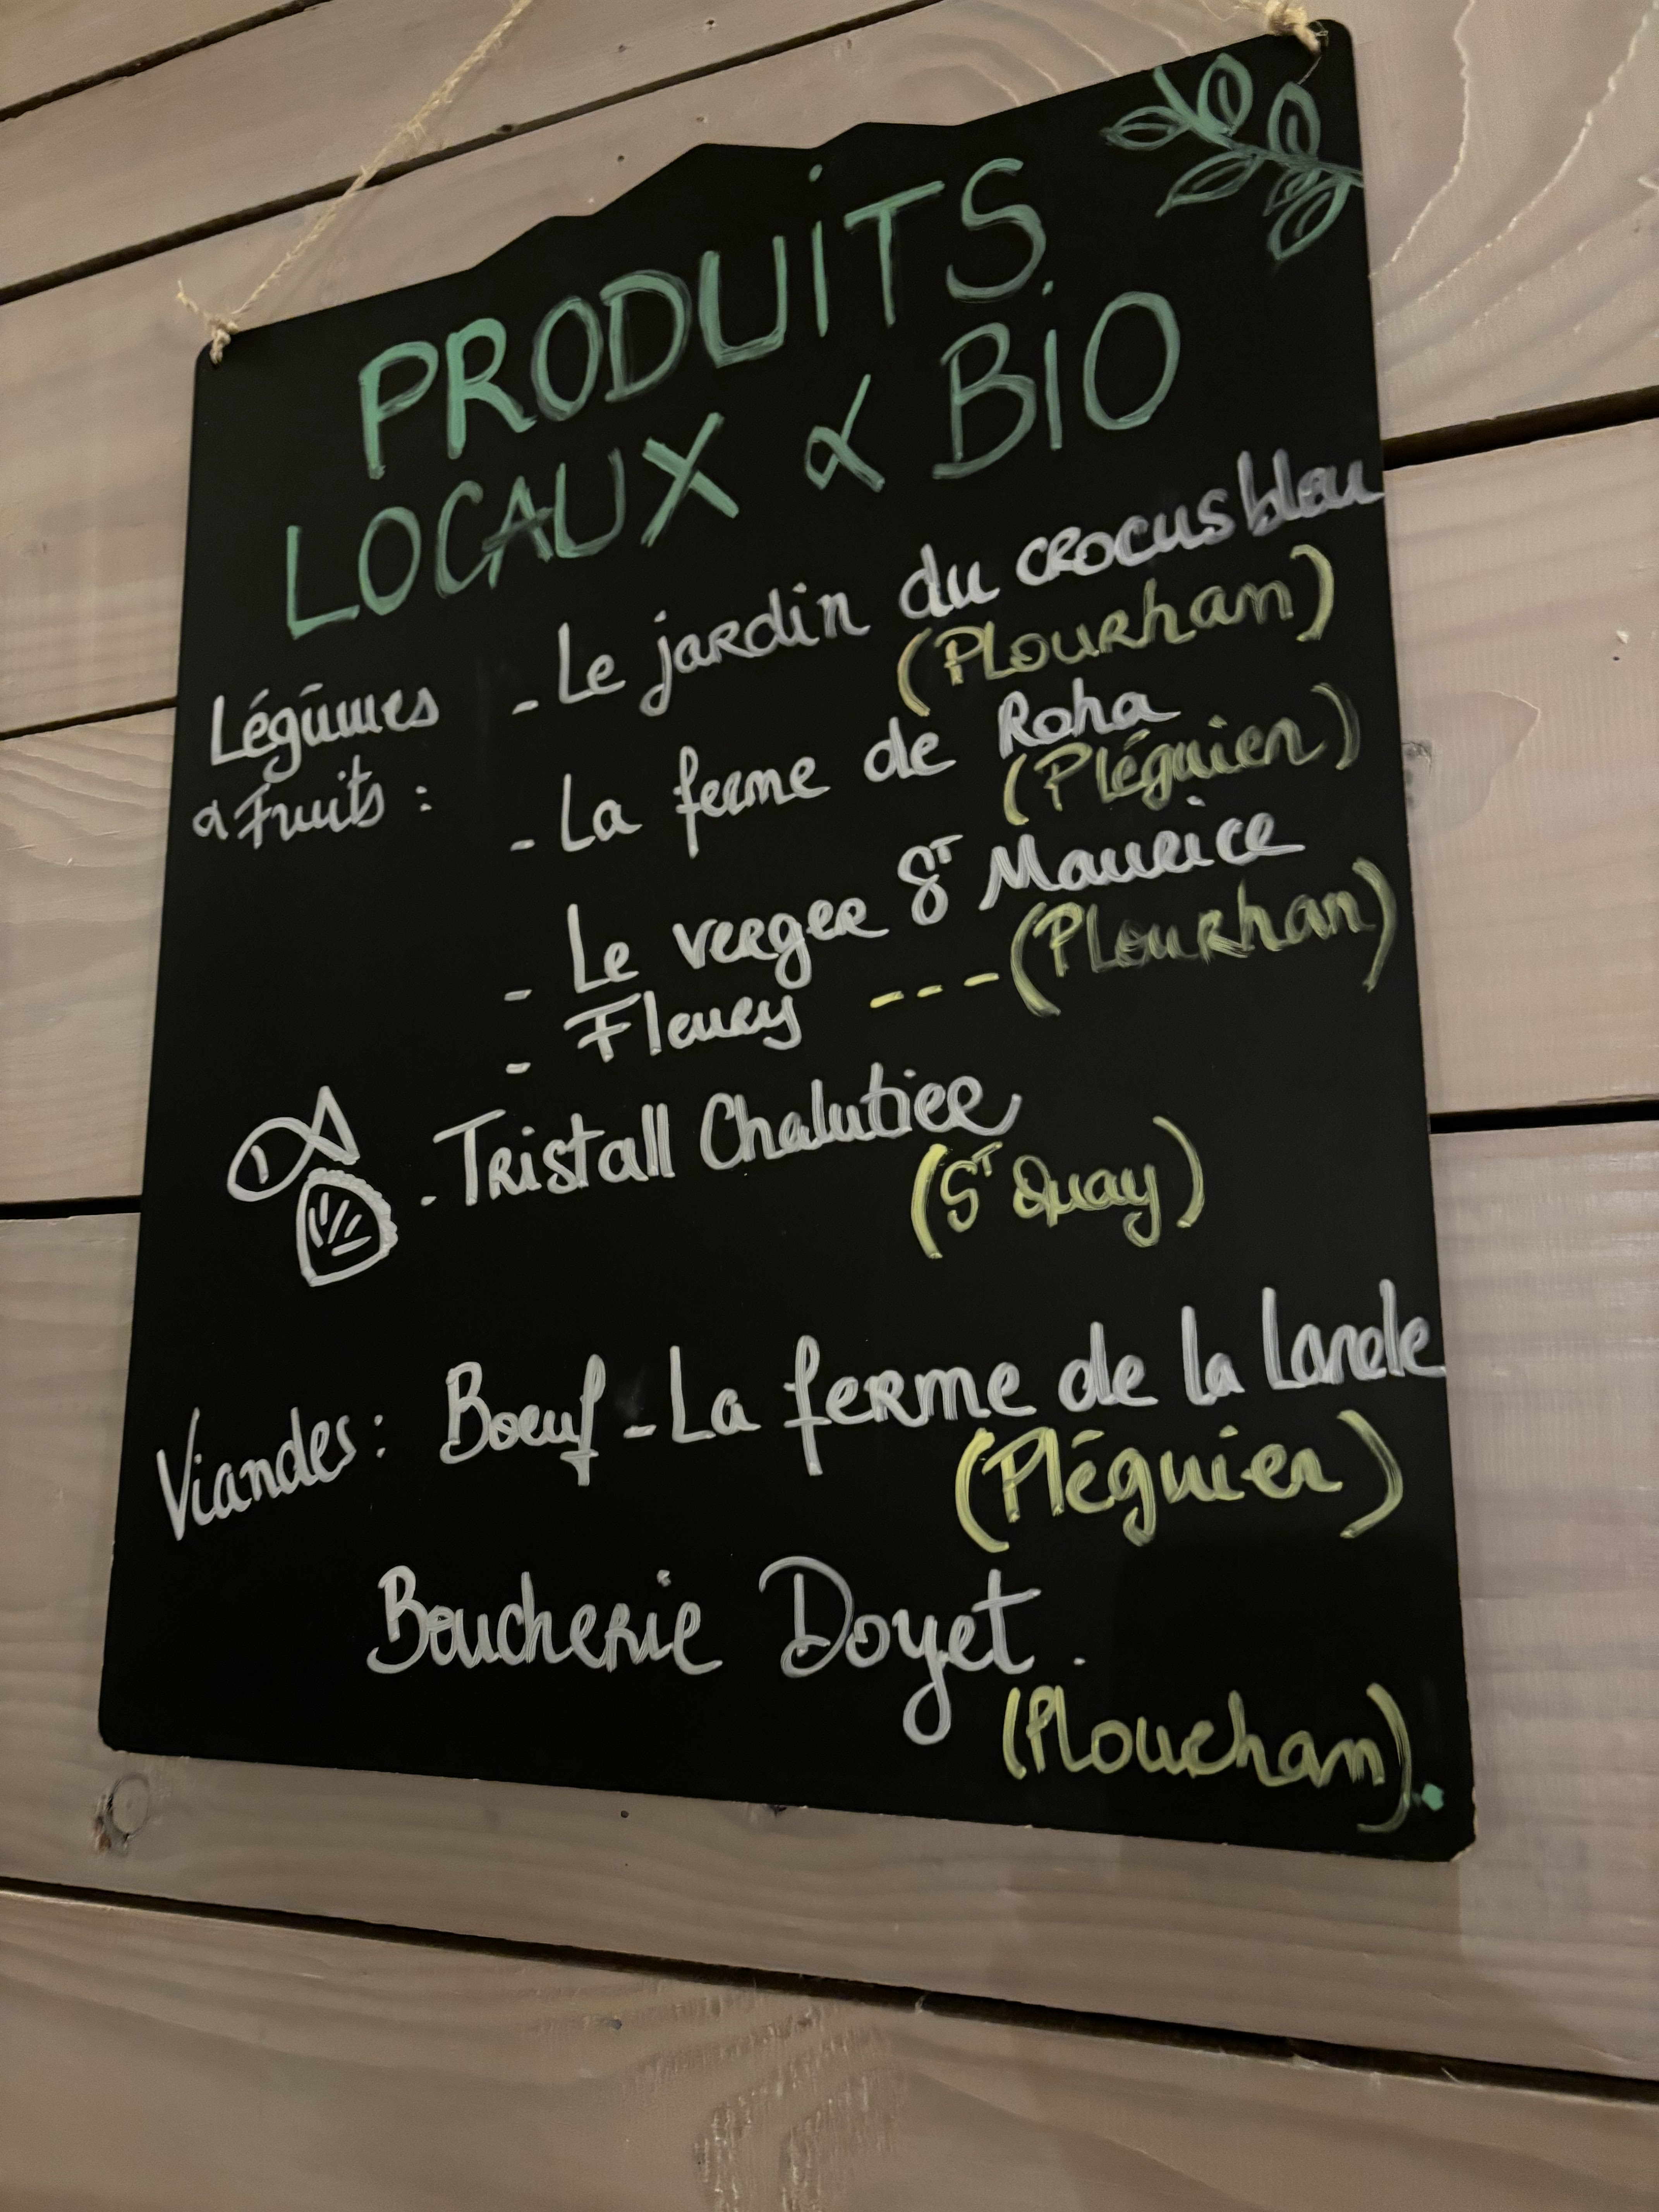 PRODUITS
LOCAUX & BIO
Légumes & Fruits :
- Le jardin du crocus bleu
(Plourhan)
- La ferme de Roha
(Pléguien)
- Le verger ST Maurice
(Plourhan)
- Fleury ---
- Tristall Chalutier
(ST Quay)
Viandes : Boeuf - La ferme de la Lande
(Pléguien)
Boucherie Doyet.
(Plourhan).